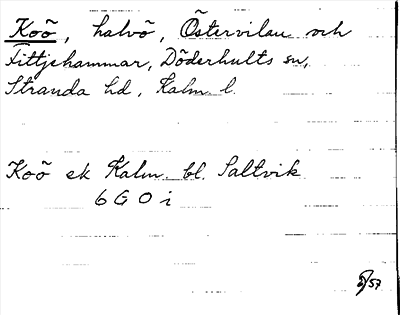 Koö, halvö, Östervilau och
Fittjehammar, Döderhults sn,
Stranda hd, Kalm. l.
Koö ek Kalm. bl. Saltvik
6 G 0 i
/57